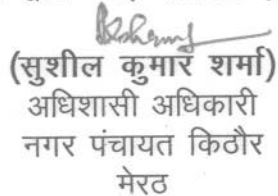 (सुशील कुमार शर्मा)
अधिशासी अधिकारी
नगर पंचायत किठौर
मेरठ